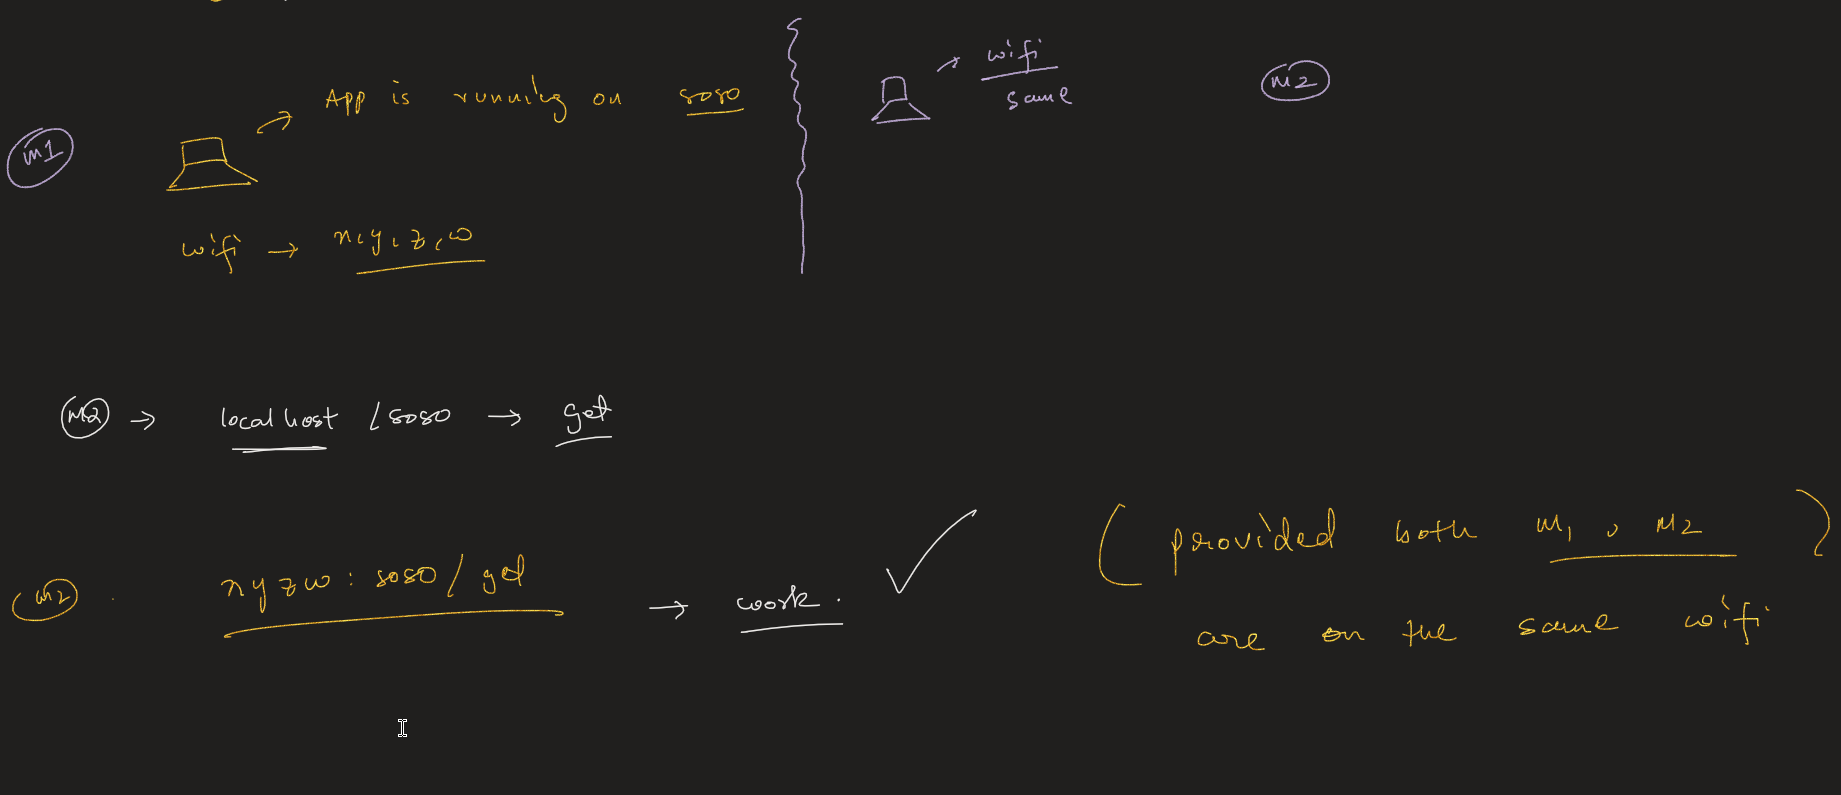 App is running on 8080
wifi
same
M2
M1
wifi → x.y.z.w
M2 → localhost /8080 → get
M2 . xyzw:8080/get → work.
(provided both M1, M2)
are on the same wifi